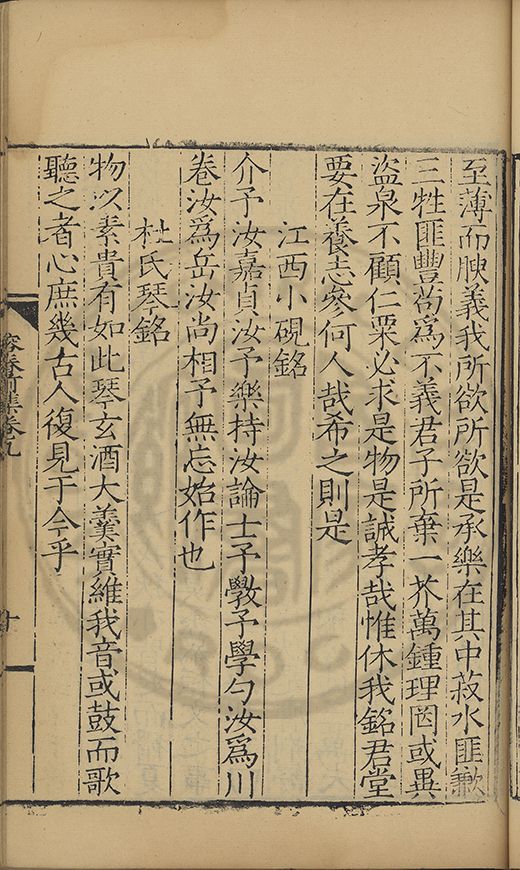 至薄而腴義我所欲所欲是承樂在其中菽水匪歉
三牲匪豐茍爲不義君子所棄一芥萬鍾理罔或異
盜泉不顧仁粟必求是物是誠孝哉惟休我銘君堂
要在養志參何人哉希之則是
江西小硯銘
介予汝嘉貞汝予樂持汝論士予斅予學勺汝爲川
卷汝爲岳汝尚相予無忘始作也
杜氏琴銘
物以素貴有如此琴玄酒大羹實維我音或鼓而歌
聽之者心庶幾古人復見于今乎
容春前集卷九
十